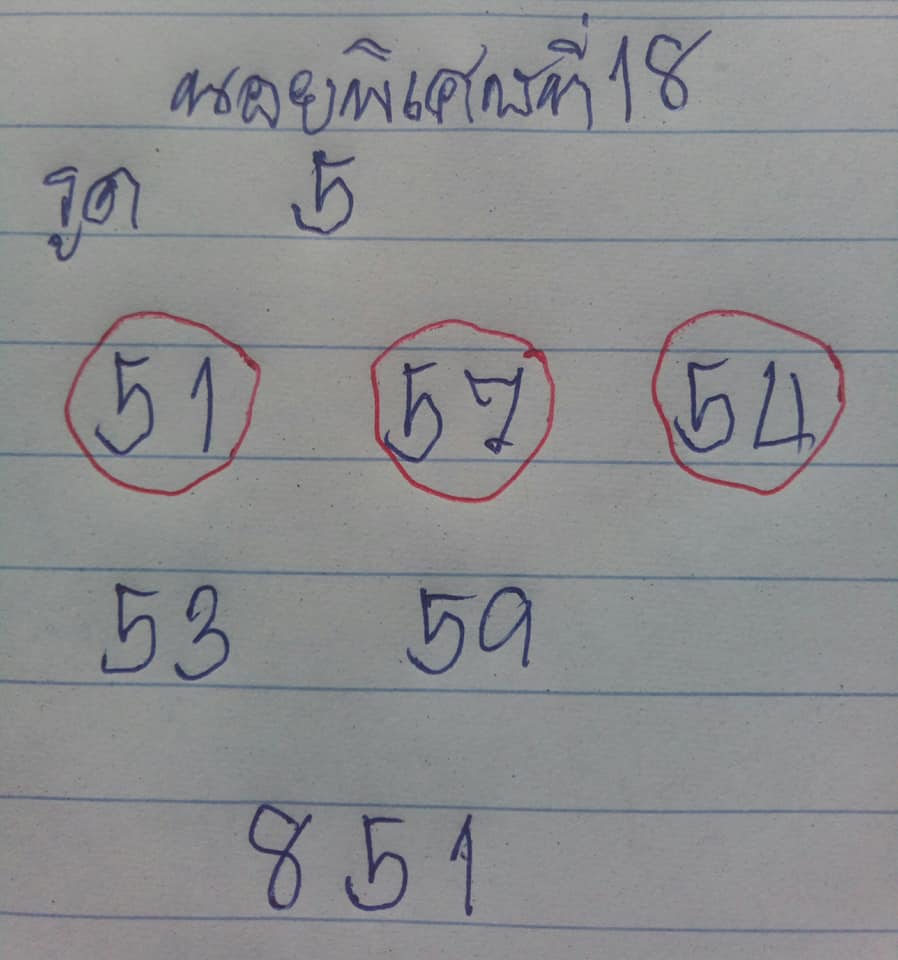 นอยพิเศษที่ 18
รูด 5
51 57 54
53 59
851